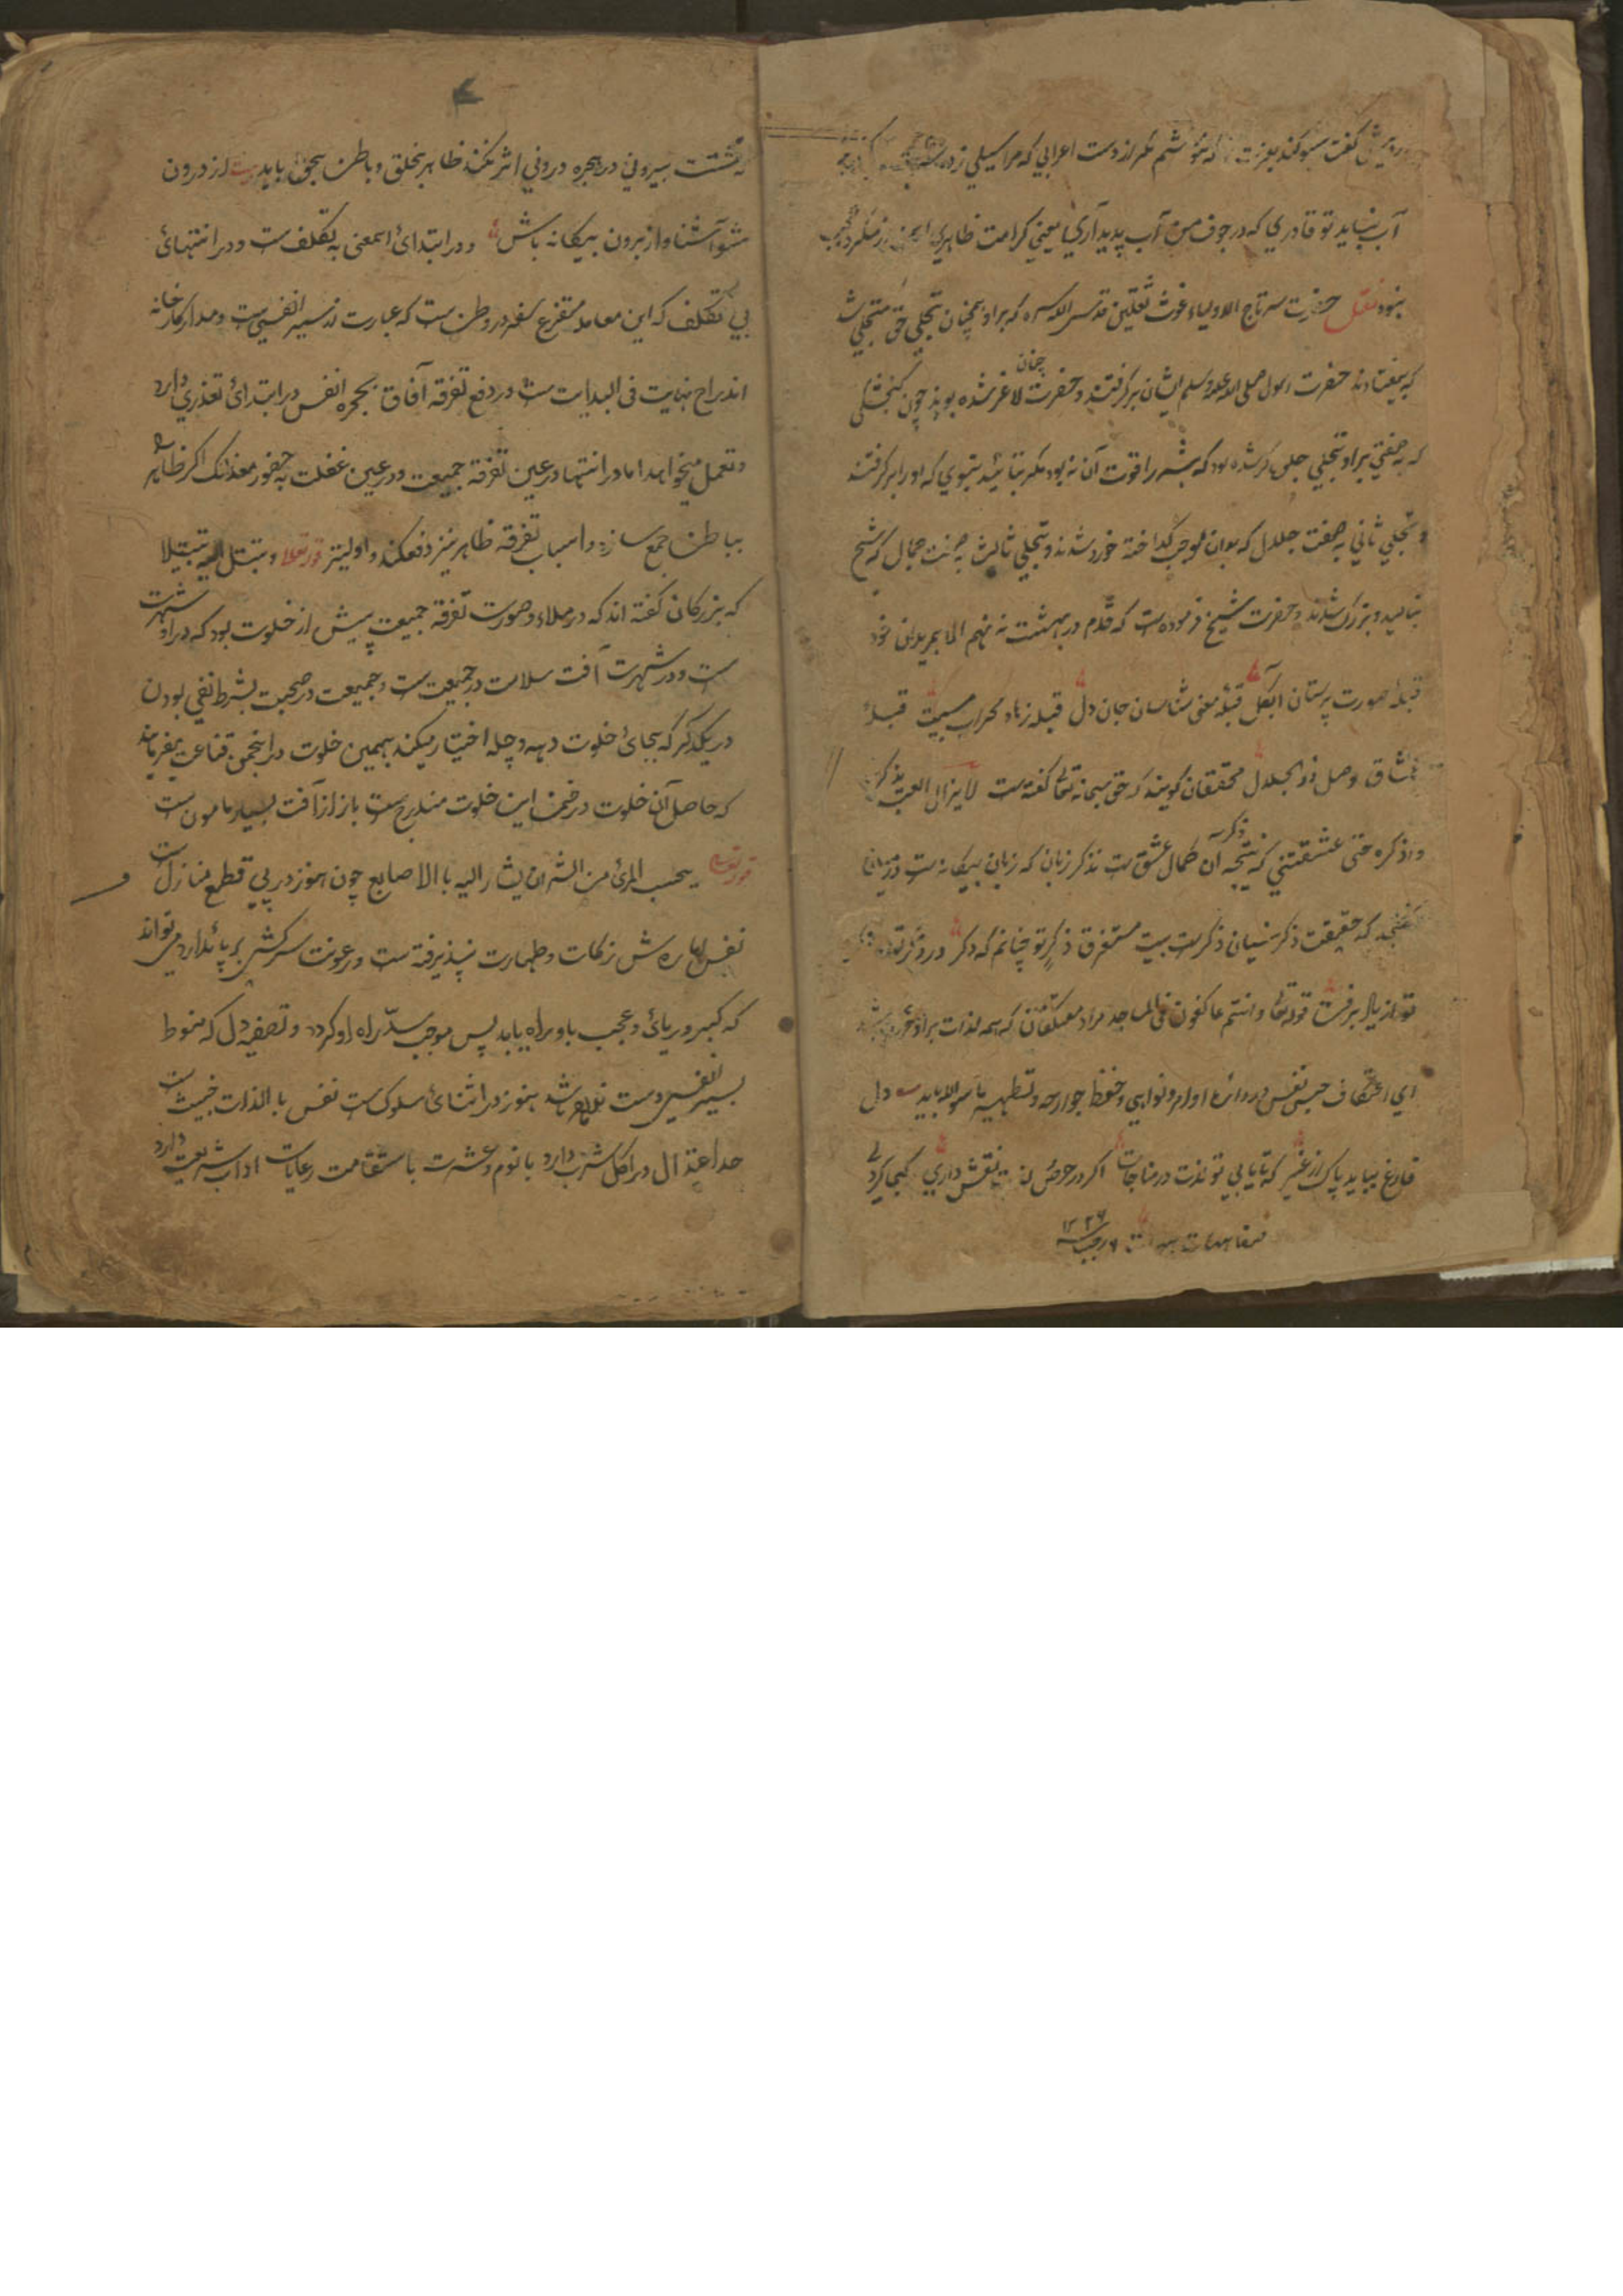 گفت سوکند بعزت که ننوشم مکر از دست اعرابی که مرا سیلی زده
آب نیاید تو قادری که در جوف من آب پدید آری یعنی کرامت ظاهری
بنود نقل حضرت سرتاج الاولیاء غوث ثقلین قدس الله سره که براو همچنان تجلی حق متجلی شد
که بیفتادند حضرت رسول صلی الله علیه وسلم ایشان برگرفتند و حضرت چنان لاغر شده بودند چون کنجشکی
که به صفتی براو تجلی جلی کرشده بود که بشر را قوت آن نه بود مکر بتائید نبوی که او را برکرفتند
و تجلی ثانی به صفت جلال که بدان موجب کداخته خورد شدند و تجلی ثالث به صفت جمال که شیخ
ببالید و بزرک شدند و حضرت شیخ فرموده ست که قدم در بهشت نه نهم الا بمریدان خود
قبله صورت پرستان آب کل قبله معنی شناسان جان دل قبله زهاد محراب قبلهٔ
عشاق وصل ذوالجلال محققان کویند که حق سبحانه تعالی کفته ست لایزال العبد یذکرنی
و اذکره حتی عشقتنی که نتیجه آن ذکر کمال عشق ست نه ذکر زبان که زبان بیکانه ست
که حقیقت ذکر نسیان ذکر ست بیت مستغرق ذکر تو چنانم که ذکر در
تو از یاد برفت قوله تعالی وانتم عاکفون فی المساجد مراد معتکفان که همه لذات براو
ای اعتکاف حبس نفس در دائره اوامر و نواهی و حفظ جوارحه و تطهیر ما سوا لا باید ست دل
فارغ بیاید پاک از غیر که تا یابی تو لذت در مناجات اکر در حوض نقش داری کجا کردی
۶ رجب ۱۲۲۶
که تشتت بیرونی در حجره درونی اثر نکند ظاهر بخلق و باطن بحق باید بیت از درون
شو آشنا و از برون بیکانه باش و در ابتدائ اسمعنی به تکلف ست و در انتهائ
بی تکلف که این معامله متفرع سفر در وطن ست که عبارت از سیر انفسی ست و مدار کار خانه
اندراج نهایت فی البدایت ست و در دفع تفرقه آفاق بحجره انفس در ابتدائ تعذری دارد
و تعمل میخواهد اما در انتها در عین تفرقه جمیعت و در عین غفلت به حضور معذلک اکر ظاهر
بباطن جمع سازد و اسباب تفرقه ظاهر نیز دفع کند و اولیتر قوله تعالا و تبتل الیه تبتیلا
که بزرکان کفته اند که در ملاء و صورت تفرقه جمیعت پیش از خلوت بود که در او شهرت
ست و در شهرت آفت سلامت در جمیعت ست و جمیعت در صحبت بشرط نفی بودن
در یکدکر که بجائ خلوت دهه و چله اختیار میکند بهمین خلوت در انجمن قناعت میفرمایند
که حاصل آن خلوت در ضمن این خلوت مندرج ست باز از آفت بسیار مامون ست
قوله تعالی بحسب المرئ من الشر ان یشار الیه با الاصابع چون هنوز در پی قطع منازل ست
نفس اماره ش زکات و طهارت نپذیرفته ست و رعونت سرکشی بر پائ دارد می تواند
که کبر و ریائ و عجب باو راه یابد پس موجب سدّ راه او کردد و تصفیه دل که منوط
بسیر انفسی ست نه واقع باشد هنوز در اثنائ سلوک ست نفس با الذات خبیث ست
حد اعتدال در اکل شرب دارد با نوم و عشرت با ستقامت رعایات اداب شریعت دارد